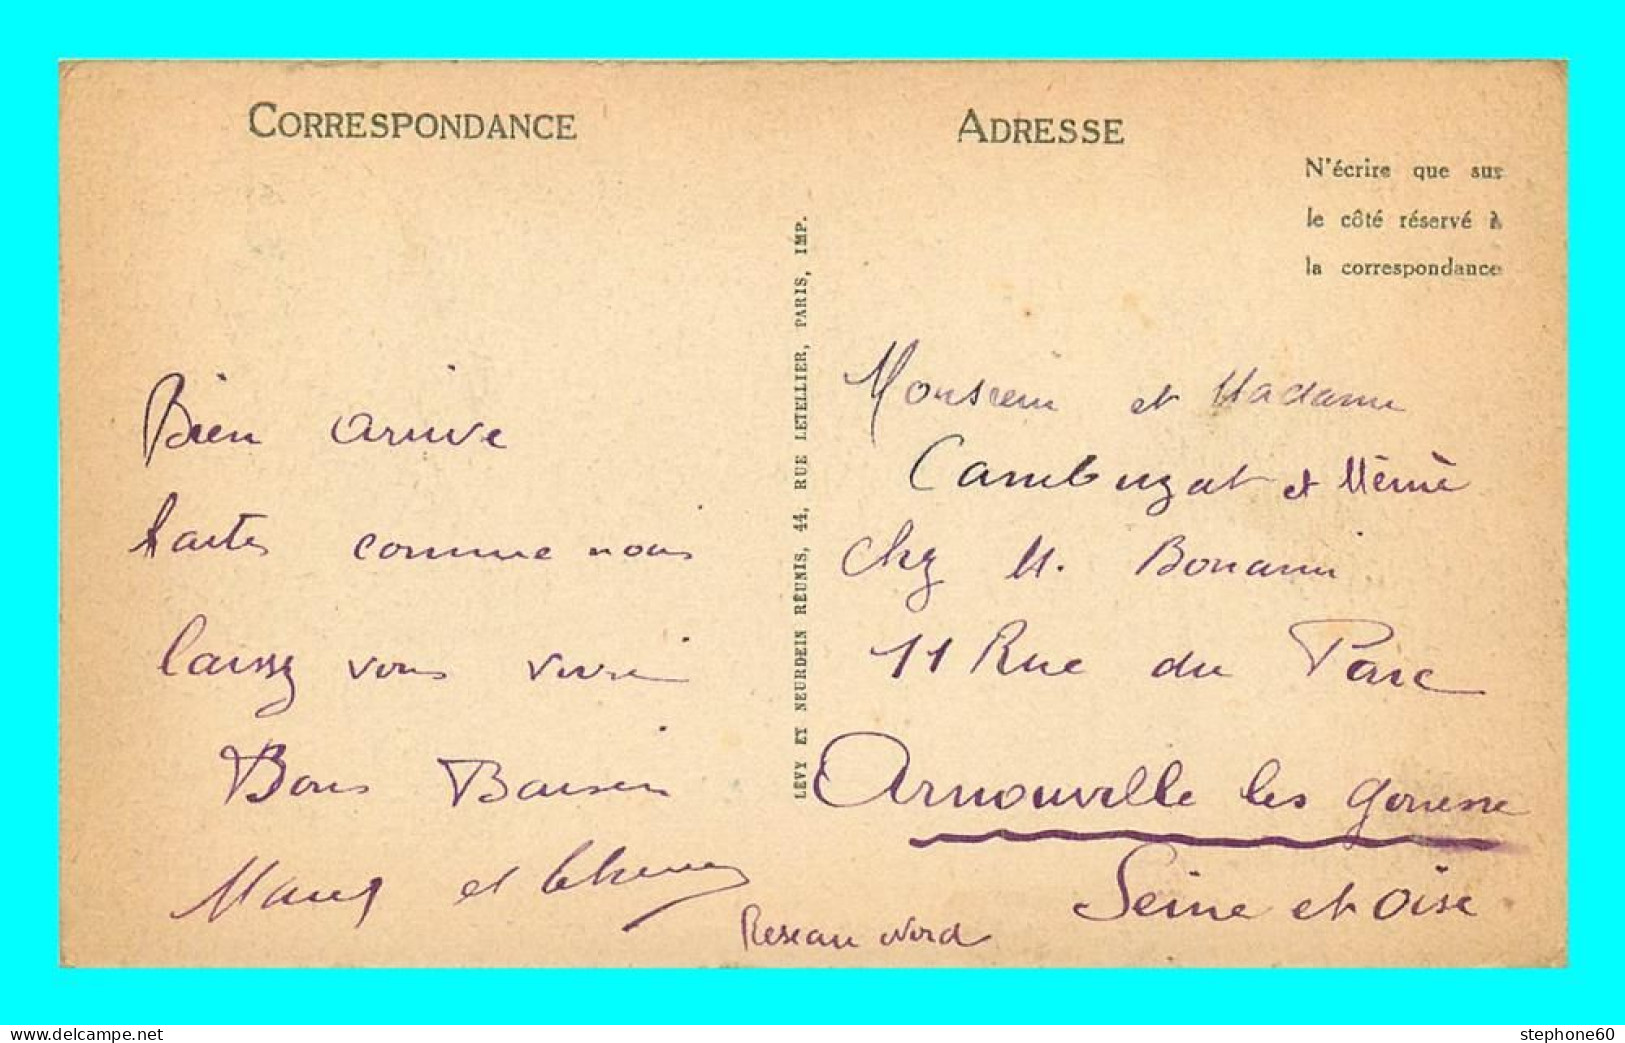 CORRESPONDANCE
Bien arrivé
faites comme nous
laissez vous vivre
Bons Baisers
et
ADRESSE
N'écrire que sur
le côté réservé à
la correspondance
LÉVY ET NEURDEIN RÉUNIS, 44, RUE LETELLIER, PARIS, IMP.
Monsieur et Madame
Cambuzat et Mémé
Chez M. Bonami
11 Rue du Parc
Arnouville les Gonesse
Seine et Oise
Reseau Nord
www.delcampe.net
stephone60